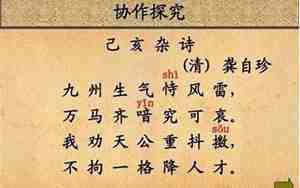 协作探究
己亥杂诗
(清) 龚自珍
shì
九州生气恃风雷，
yīn
万马齐喑究可哀。
sǒu
我劝天公重抖擞，
不拘一格降人才。